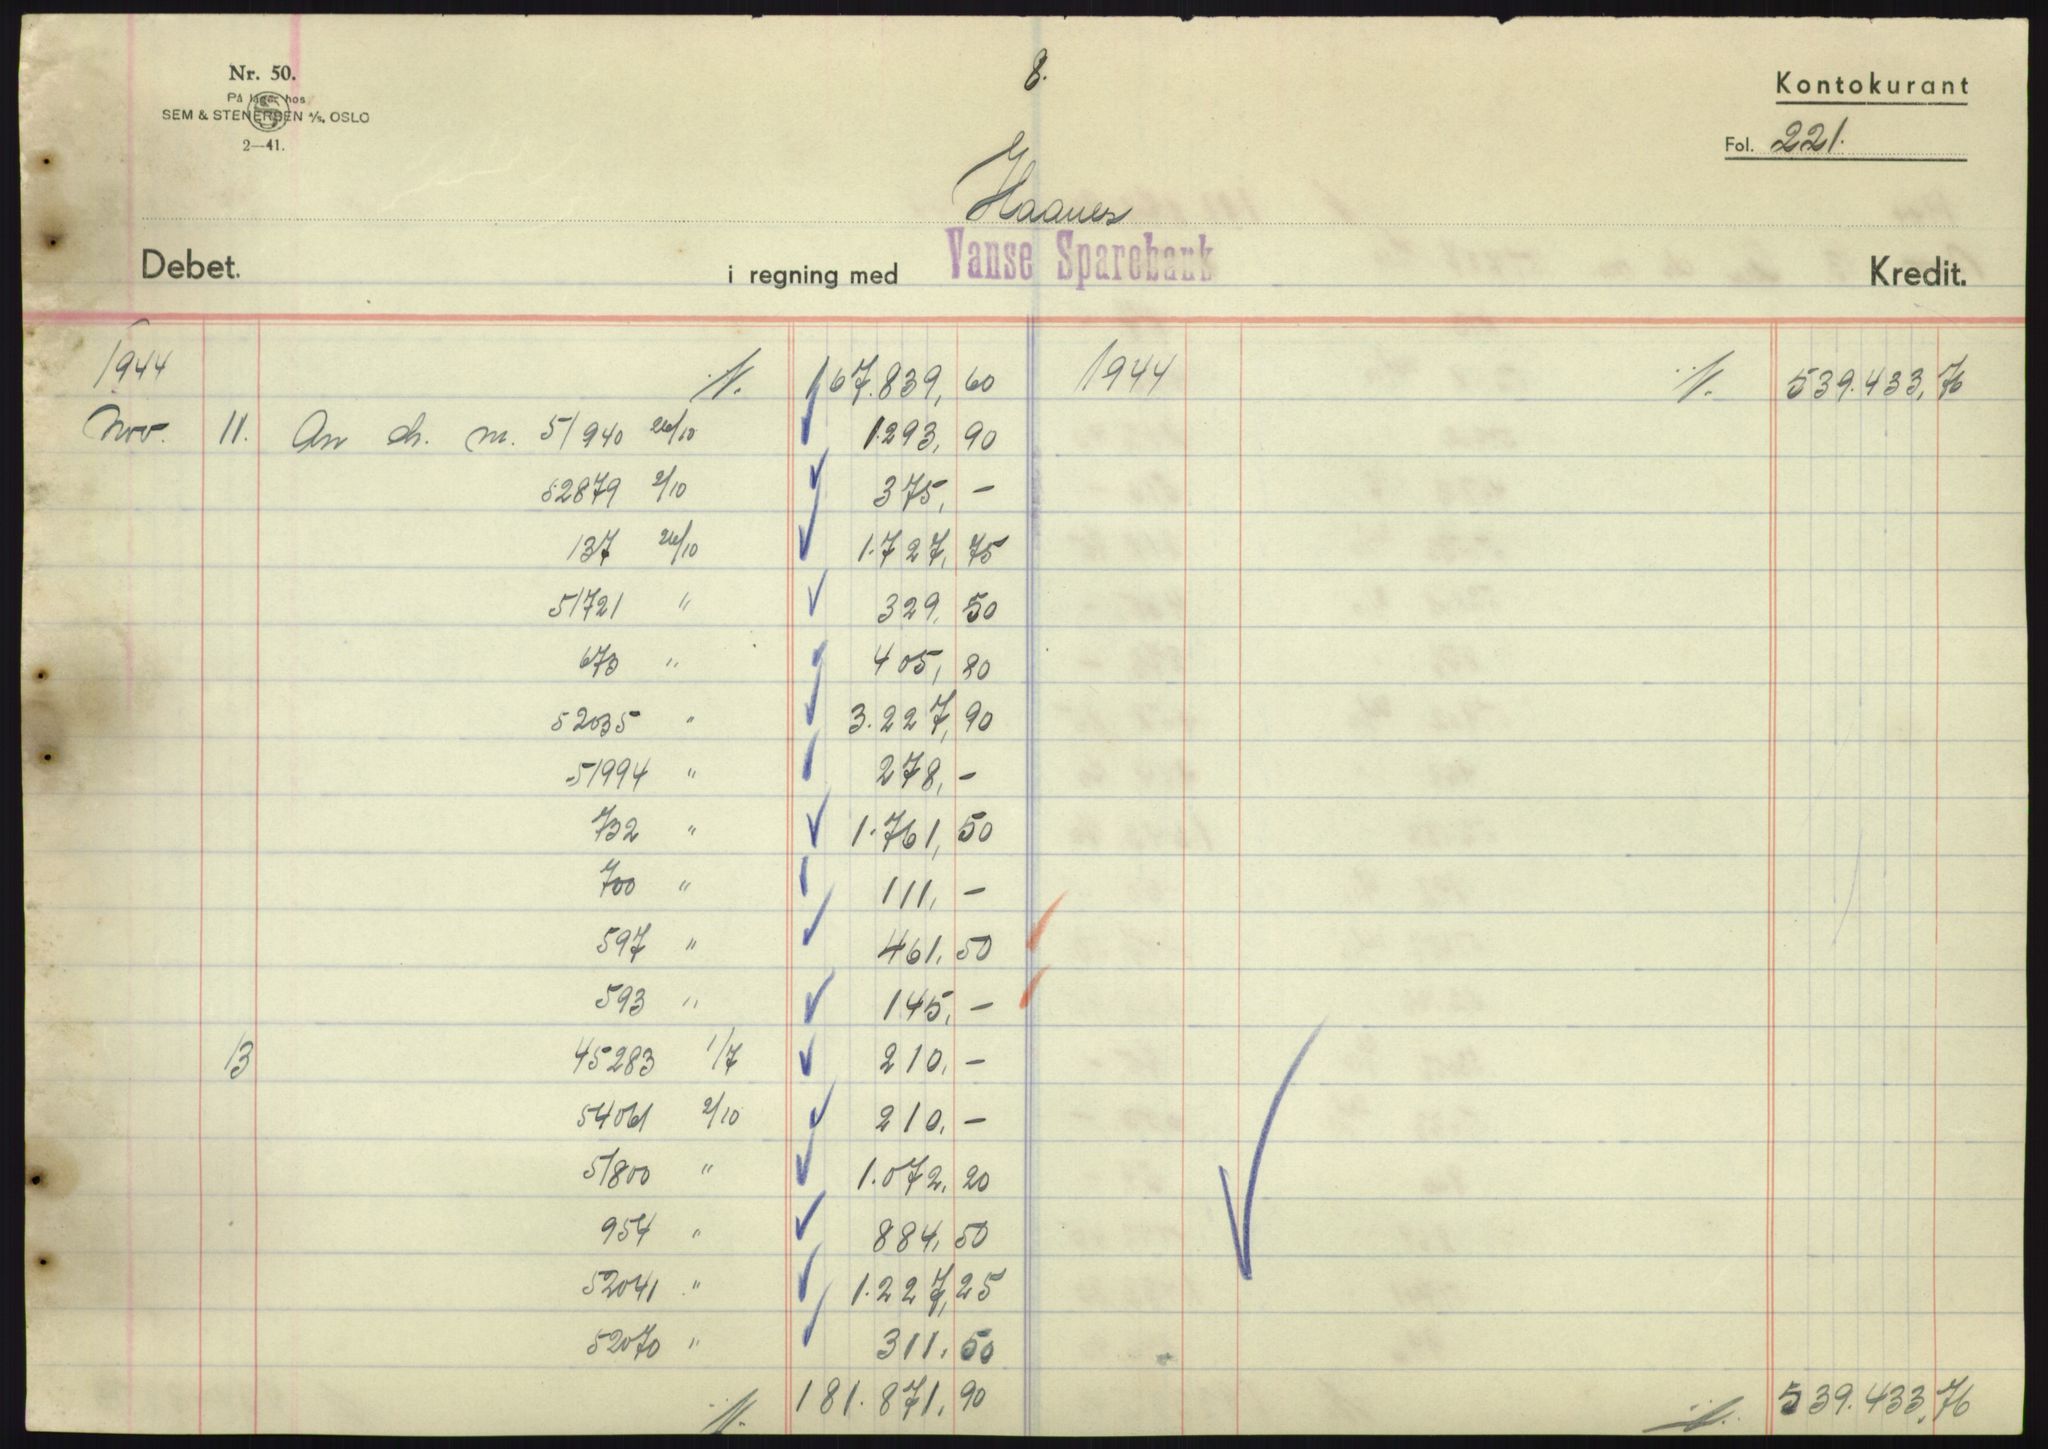 Nr. 50.
På lager hos
SEM & STENERSEN A/S, OSLO
2—41.
8.
Kontokurant
Fol. 221.
Haanes
Debet. i regning med Vanse Sparebank Kredit.
1944 167.839,60 1944 539.433,76
Nov. 11. An ch. m. 51940 26/10 1.293,90
52879 2/10 375,–
137 26/10 1.727,75
51721 " 329,50
673 " 405,80
52035 " 3.227,90
51994 " 278,–
732 " 1.761,50
700 " 111,–
597 " 461,50
593 " 145,–
13 45283 1/7 210,–
54061 2/10 210,–
51800 " 1.072,20
954 " 884,50
52041 " 1.227,25
52070 " 311,50
181.871,90 539.433,76